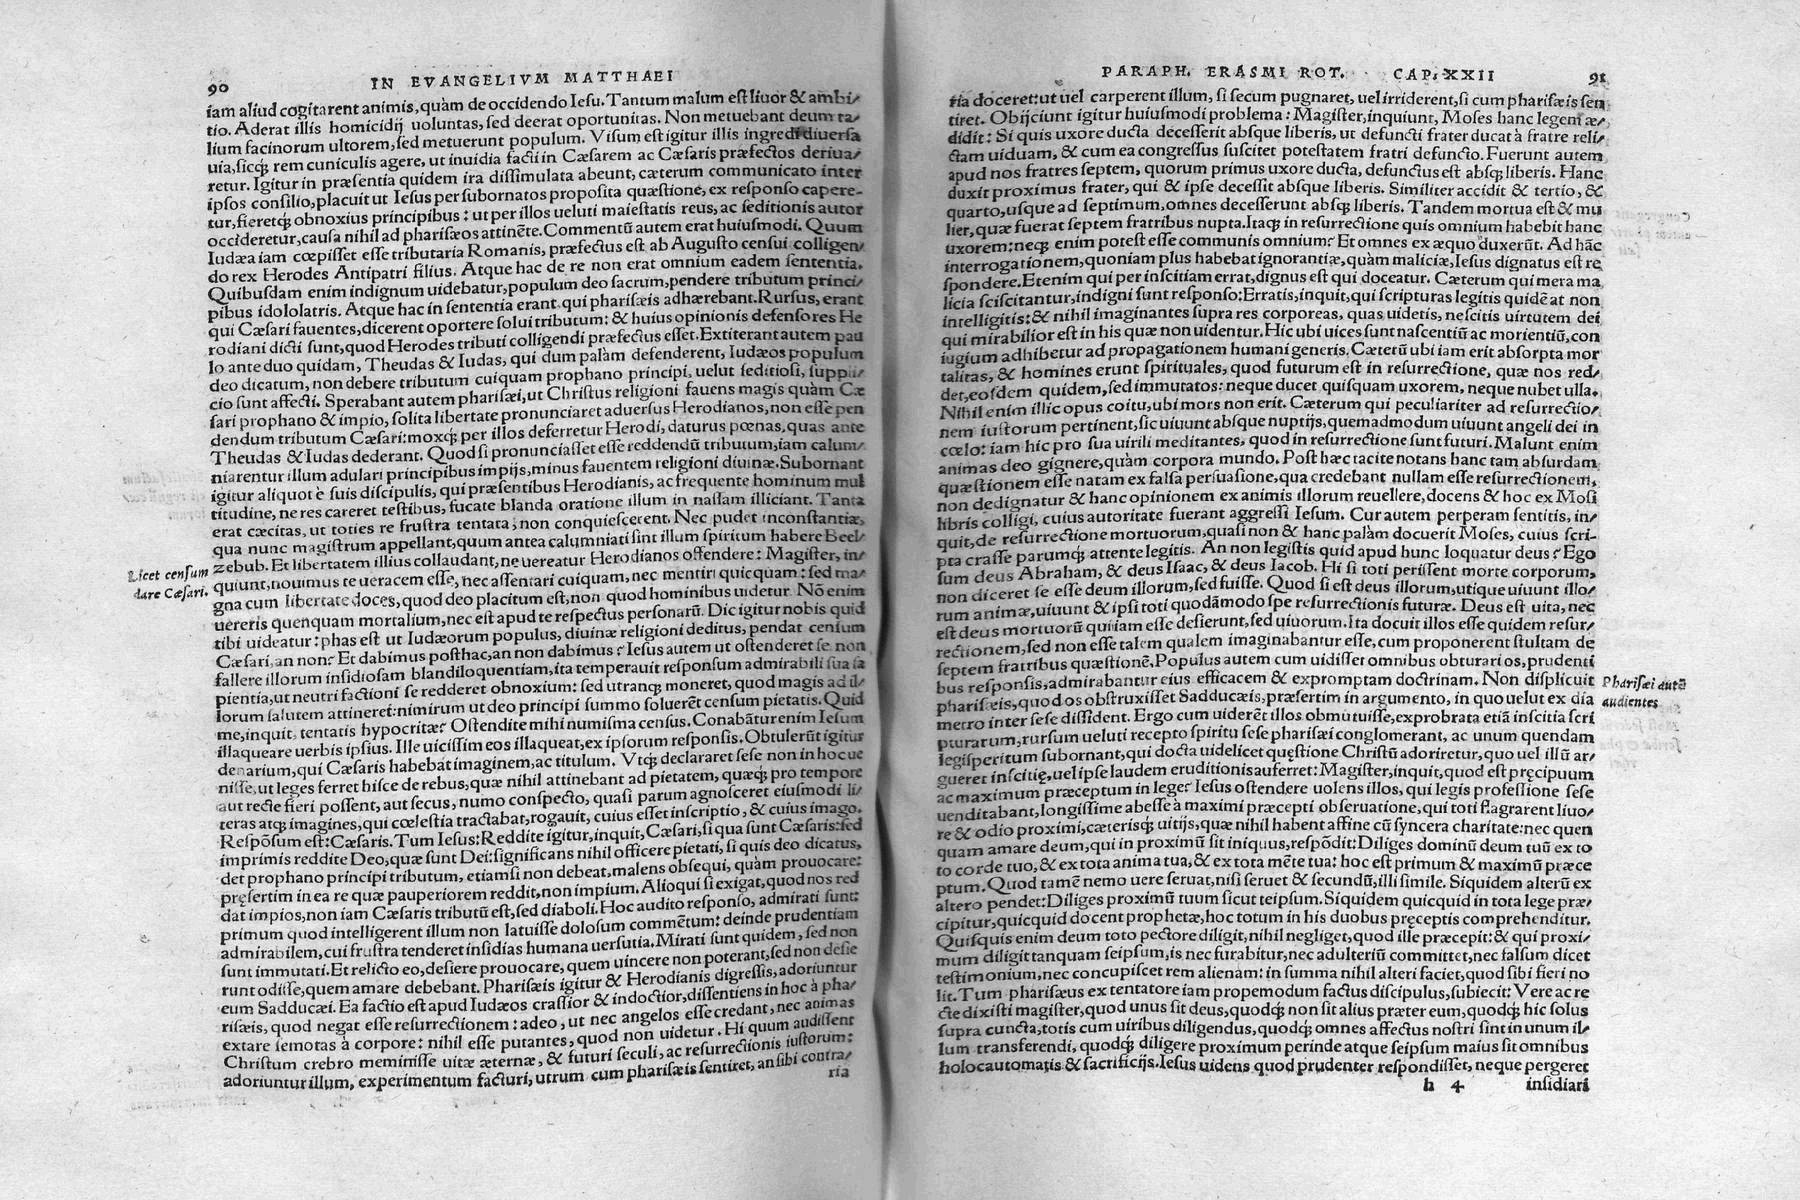 90 IN EVANGELIVM MATTHAEI
iam aliud cogitarent animis, quàm de occidendo Iesu. Tantum malum est liuor & ambi/
tio. Aderat illis homicidij uoluntas, sed deerat oportunitas. Non metuebant deum ta/
lium facinorum ultorem, sed metuerunt populum. Visum est igitur illis ingredi diuersa
uia, sicq; rem cuniculis agere, ut inuidia facti in Cæsarem ac Cæsaris præfectos deriua/
retur. Igitur in præsentia quidem ira dissimulata abeunt, cæterum communicato inter
ipsos consilio, placuit ut Iesus per subornatos proposita quæstione, ex responso capere-
tur, fieretq; obnoxius principibus: ut per illos ueluti maiestatis reus, ac seditionis autor
occideretur, causa nihil ad pharisæos attinẽte. Commentũ autem erat huiusmodi. Quum
Iudæa iam cœpisset esse tributaria Romanis, præfectus est ab Augusto censui colligen/
do rex Herodes Antipatri filius. Atque hac de re non erat omnium eadem sententia.
Quibusdam enim indignum uidebatur, populum deo sacrum, pendere tributum princi/
pibus idololatris. Atque hac in sententia erant qui pharisæis adhærebant. Rursus, erant
qui Cæsari fauentes, dicerent oportere solui tributum: & huius opinionis defensores He
rodiani dicti sunt, quod Herodes tributi colligendi præfectus esset. Extiterant autem pau
lo ante duo quidam, Theudas & Iudas, qui dum palàm defenderent, Iudæos populum
deo dicatum, non debere tributum cuiquam prophano principi, uelut seditiosi, suppli/
cio sunt affecti. Sperabant autem pharisæi, ut Christus religioni fauens magis quàm Cæ
sari prophano & impio, solita libertate pronunciaret aduersus Herodianos, non esse pen
dendum tributum Cæsari: moxq; per illos deferretur Herodi, daturus pœnas, quas ante
Theudas & Iudas dederant. Quod si pronunciasset esse reddendũ tributum, iam calum/
niarentur illum adulari principibus impijs, minus fauentem religioni diuinæ. Subornant
igitur aliquot è suis discipulis, qui præsentibus Herodianis, ac frequente hominum mul
titudine, ne res careret testibus, fucate blanda oratione illum in nassam illiciant. Tanta
erat cæcitas, ut toties re frustra tentata, non conquiescerent. Nec pudet inconstantiæ,
qua nunc magistrum appellant, quum antea calumniati sint illum spiritum habere Beel
zebub. Et libertatem illius collaudant, ne uereatur Herodianos offendere: Magister, in/
Licet censum
dare Cæsari.
quiunt, nouimus te ueracem esse, nec assentari cuiquam, nec mentiri quicquam: sed ma/
gna cum libertate doces, quod deo placitum est, non quod hominibus uidetur. Nõ enim
uereris quenquam mortalium, nec est apud te respectus personarũ. Dic igitur nobis quid
tibi uideatur: phas est ut Iudæorum populus, diuinæ religioni deditus, pendat censum
Cæsari, an non? Et dabimus posthac, an non dabimus? Iesus autem ut ostenderet se non
fallere illorum insidiosam blandiloquentiam, ita temperauit responsum admirabili sua sa
pientia, ut neutri factioni se redderet obnoxium: sed utranq; moneret, quod magis ad il/
lorum salutem attineret: nimirum ut deo principi summo soluerẽt censum pietatis. Quid
me, inquit, tentatis hypocritæ? Ostendite mihi numisma census. Conabãtur enim Iesum
illaqueare uerbis ipsius. Ille uicissim eos illaqueat, ex ipsorum responsis. Obtulerũt igitur
denarium, qui Cæsaris habebat imaginem, ac titulum. Vtq; declararet sese non in hoc ue
nisse, ut leges ferret hisce de rebus, quæ nihil attinebant ad pietatem, quæq; pro tempore
aut recte fieri possent, aut secus, numo conspecto, quasi parum agnosceret eiusmodi li/
teras atq; imagines, qui cœlestia tractabat, rogauit, cuius esset inscriptio, & cuius imago.
Respõsum est: Cæsaris. Tum Iesus: Reddite igitur, inquit, Cæsari, si qua sunt Cæsaris: sed
imprimis reddite Deo, quæ sunt Dei: significans nihil officere pietati, si quis deo dicatus,
det prophano principi tributum, etiamsi non debeat, malens obsequi, quàm prouocare:
pręsertim in ea re quæ pauperiorem reddit, non impium. Alioqui si exigat, quod nos red
dat impios, non iam Cæsaris tributũ est, sed diaboli. Hoc audito responso, admirati sunt:
primum quod intelligerent illum non latuisse dolosum commẽtum: deinde prudentiam
admirabilem, cui frustra tenderet insidias humana uersutia. Mirati sunt quidem, sed non
sunt immutati. Et relicto eo, desiere prouocare, quem uincere non poterant, sed non desie
runt odisse, quem amare debebant. Pharisæis igitur & Herodianis digressis, adoriuntur
eum Sadducæi. Ea factio est apud Iudæos crassior & indoctior, dissentiens in hoc à pha/
risæis, quod negat esse resurrectionem: adeo, ut nec angelos esse credant, nec animas
extare semotas à corpore: nihil esse putantes, quod non uidetur. Hi quum audissent
Christum crebro meminisse uitæ æternæ, & futuri seculi, ac resurrectionis iustorum:
adoriuntur illum, experimentum facturi, utrum cum pharisæis sentiret, an sibi contra/
ria
PARAPH. ERASMI ROT. CAP. XXII 91
ria doceret: ut uel carperent illum, si secum pugnaret, uel irriderent, si cum pharisæis sen
tiret. Obijciunt igitur huiusmodi problema: Magister, inquiunt, Moses hanc legem æ/
didit: Si quis uxore ducta decesserit absque liberis, ut defuncti frater ducat à fratre reli/
ctam uiduam, & cum ea congressus suscitet potestatem fratri defuncto. Fuerunt autem
apud nos fratres septem, quorum primus uxore ducta, defunctus est absq; liberis. Hanc
duxit proximus frater, qui & ipse decessit absque liberis. Similiter accidit & tertio, &
quarto, usque ad septimum, omnes decesserunt absq; liberis. Tandem mortua est & mu
lier, quæ fuerat septem fratribus nupta. Itaq; in resurrectione quis omnium habebit hanc
uxorem: neq; enim potest esse communis omnium? Et omnes ex æquo duxerũt. Ad hãc
interrogationem, quoniam plus habebat ignorantiæ, quàm maliciæ, Iesus dignatus est re
spondere. Etenim qui per inscitiam errat, dignus est qui doceatur. Cæterum qui mera ma
licia sciscitantur, indigni sunt responso: Erratis, inquit, qui scripturas legitis quidẽ at non
intelligitis: & nihil imaginantes supra res corporeas, quas uidetis, nescitis uirtutem dei
qui mirabilior est in his quæ non uidentur. Hic ubi uices sunt nascentiũ ac morientiũ, con
iugium adhibetur ad propagationem humani generis. Cæterũ ubi iam erit absorpta mor
talitas, & homines erunt spirituales, quod futurum est in resurrectione, quæ nos red/
det, eosdem quidem, sed immutatos: neque ducet quisquam uxorem, neque nubet ulla.
Nihil enim illic opus coitu, ubi mors non erit. Cæterum qui peculiariter ad resurrectio/
nem iustorum pertinent, sic uiuunt absque nuptijs, quemadmodum uiuunt angeli dei in
cœlo: iam hic pro sua uirili meditantes, quod in resurrectione sunt futuri. Malunt enim
animas deo gignere, quàm corpora mundo. Post hæc tacite notans hanc tam absurdam
quæstionem esse natam ex falsa persuasione, qua credebant nullam esse resurrectionem,
non dedignatur & hanc opinionem ex animis illorum reuellere, docens & hoc ex Mosi
libris colligi, cuius autoritate fuerant aggressi Iesum. Cur autem perperam sentitis, in/
quit, de resurrectione mortuorum, quasi non & hanc palàm docuerit Moses, cuius scri-
pta crasse parumq; attente legitis. An non legistis quid apud hunc loquatur deus? Ego
sum deus Abraham, & deus Isaac, & deus Iacob. Hi si toti perissent morte corporum,
non diceret se esse deum illorum, sed fuisse. Quod si est deus illorum, utique uiuunt illo/
rum animæ, uiuunt & ipsi toti quodãmodo spe resurrectionis futuræ. Deus est uita, nec
est deus mortuorũ qui iam esse desierunt, sed uiuorum. Ita docuit illos esse quidem resur/
rectionem, sed non esse talem qualem imaginabantur esse, cum proponerent stultam de
septem fratribus quæstionẽ. Populus autem cum uidisset omnibus obturari os, prudenti
bus responsis, admirabantur eius efficacem & expromptam doctrinam. Non displicuit
Pharisæi autẽ
audientes
pharisæis, quod os obstruxisset Sadducæis, præsertim in argumento, in quo uelut ex dia
metro inter sese dissident. Ergo cum uiderẽt illos obmutuisse, exprobrata etiã inscitia scri
pturarum, rursum ueluti recepto spiritu sese pharisæi conglomerant, ac unum quendam
legisperitum subornant, qui docta uidelicet quęstione Christũ adoriretur, quo uel illũ ar/
gueret inscitię, uel ipse laudem eruditionis auferret: Magister, inquit, quod est pręcipuum
ac maximum præceptum in lege? Iesus ostendere uolens illos, qui legis professione sese
uenditabant, longissime abesse à maximi præcepti obseruatione, qui toti flagrarent liuo/
re & odio proximi, cæterisq; uitijs, quæ nihil habent affine cũ syncera charitate: nec quen
quam amare deum, qui in proximũ sit iniquus, respõdit: Diliges dominũ deum tuũ ex to
to corde tuo, & ex tota anima tua, & ex tota mẽte tua: hoc est primum & maximũ præce
ptum. Quod tamẽ nemo uere seruat, nisi seruet & secundũ, illi simile. Siquidem alterũ ex
altero pendet: Diliges proximũ tuum sicut teipsum. Siquidem quicquid in tota lege præ/
cipitur, quicquid docent prophetæ, hoc totum in his duobus pręceptis comprehenditur.
Quisquis enim deum toto pectore diligit, nihil negliget, quod ille præcepit: & qui proxi/
mum diligit tanquam seipsum, is nec furabitur, nec adulteriũ committet, nec falsum dicet
testimonium, nec concupiscet rem alienam: in summa nihil alteri faciet, quod sibi fieri no
lit. Tum pharisæus ex tentatore iam propemodum factus discipulus, subiecit: Vere ac re
cte dixisti magister, quod unus sit deus, quodq; non sit alius præter eum, quodq; hic solus
supra cuncta, totis cum uiribus diligendus, quodq; omnes affectus nostri sint in unum il/
lum transferendi, quodq; diligere proximum perinde atque seipsum maius sit omnibus
holocautomatis & sacrificijs. Iesus uidens quod prudenter respondisset, neque pergeret
h 4 insidiari